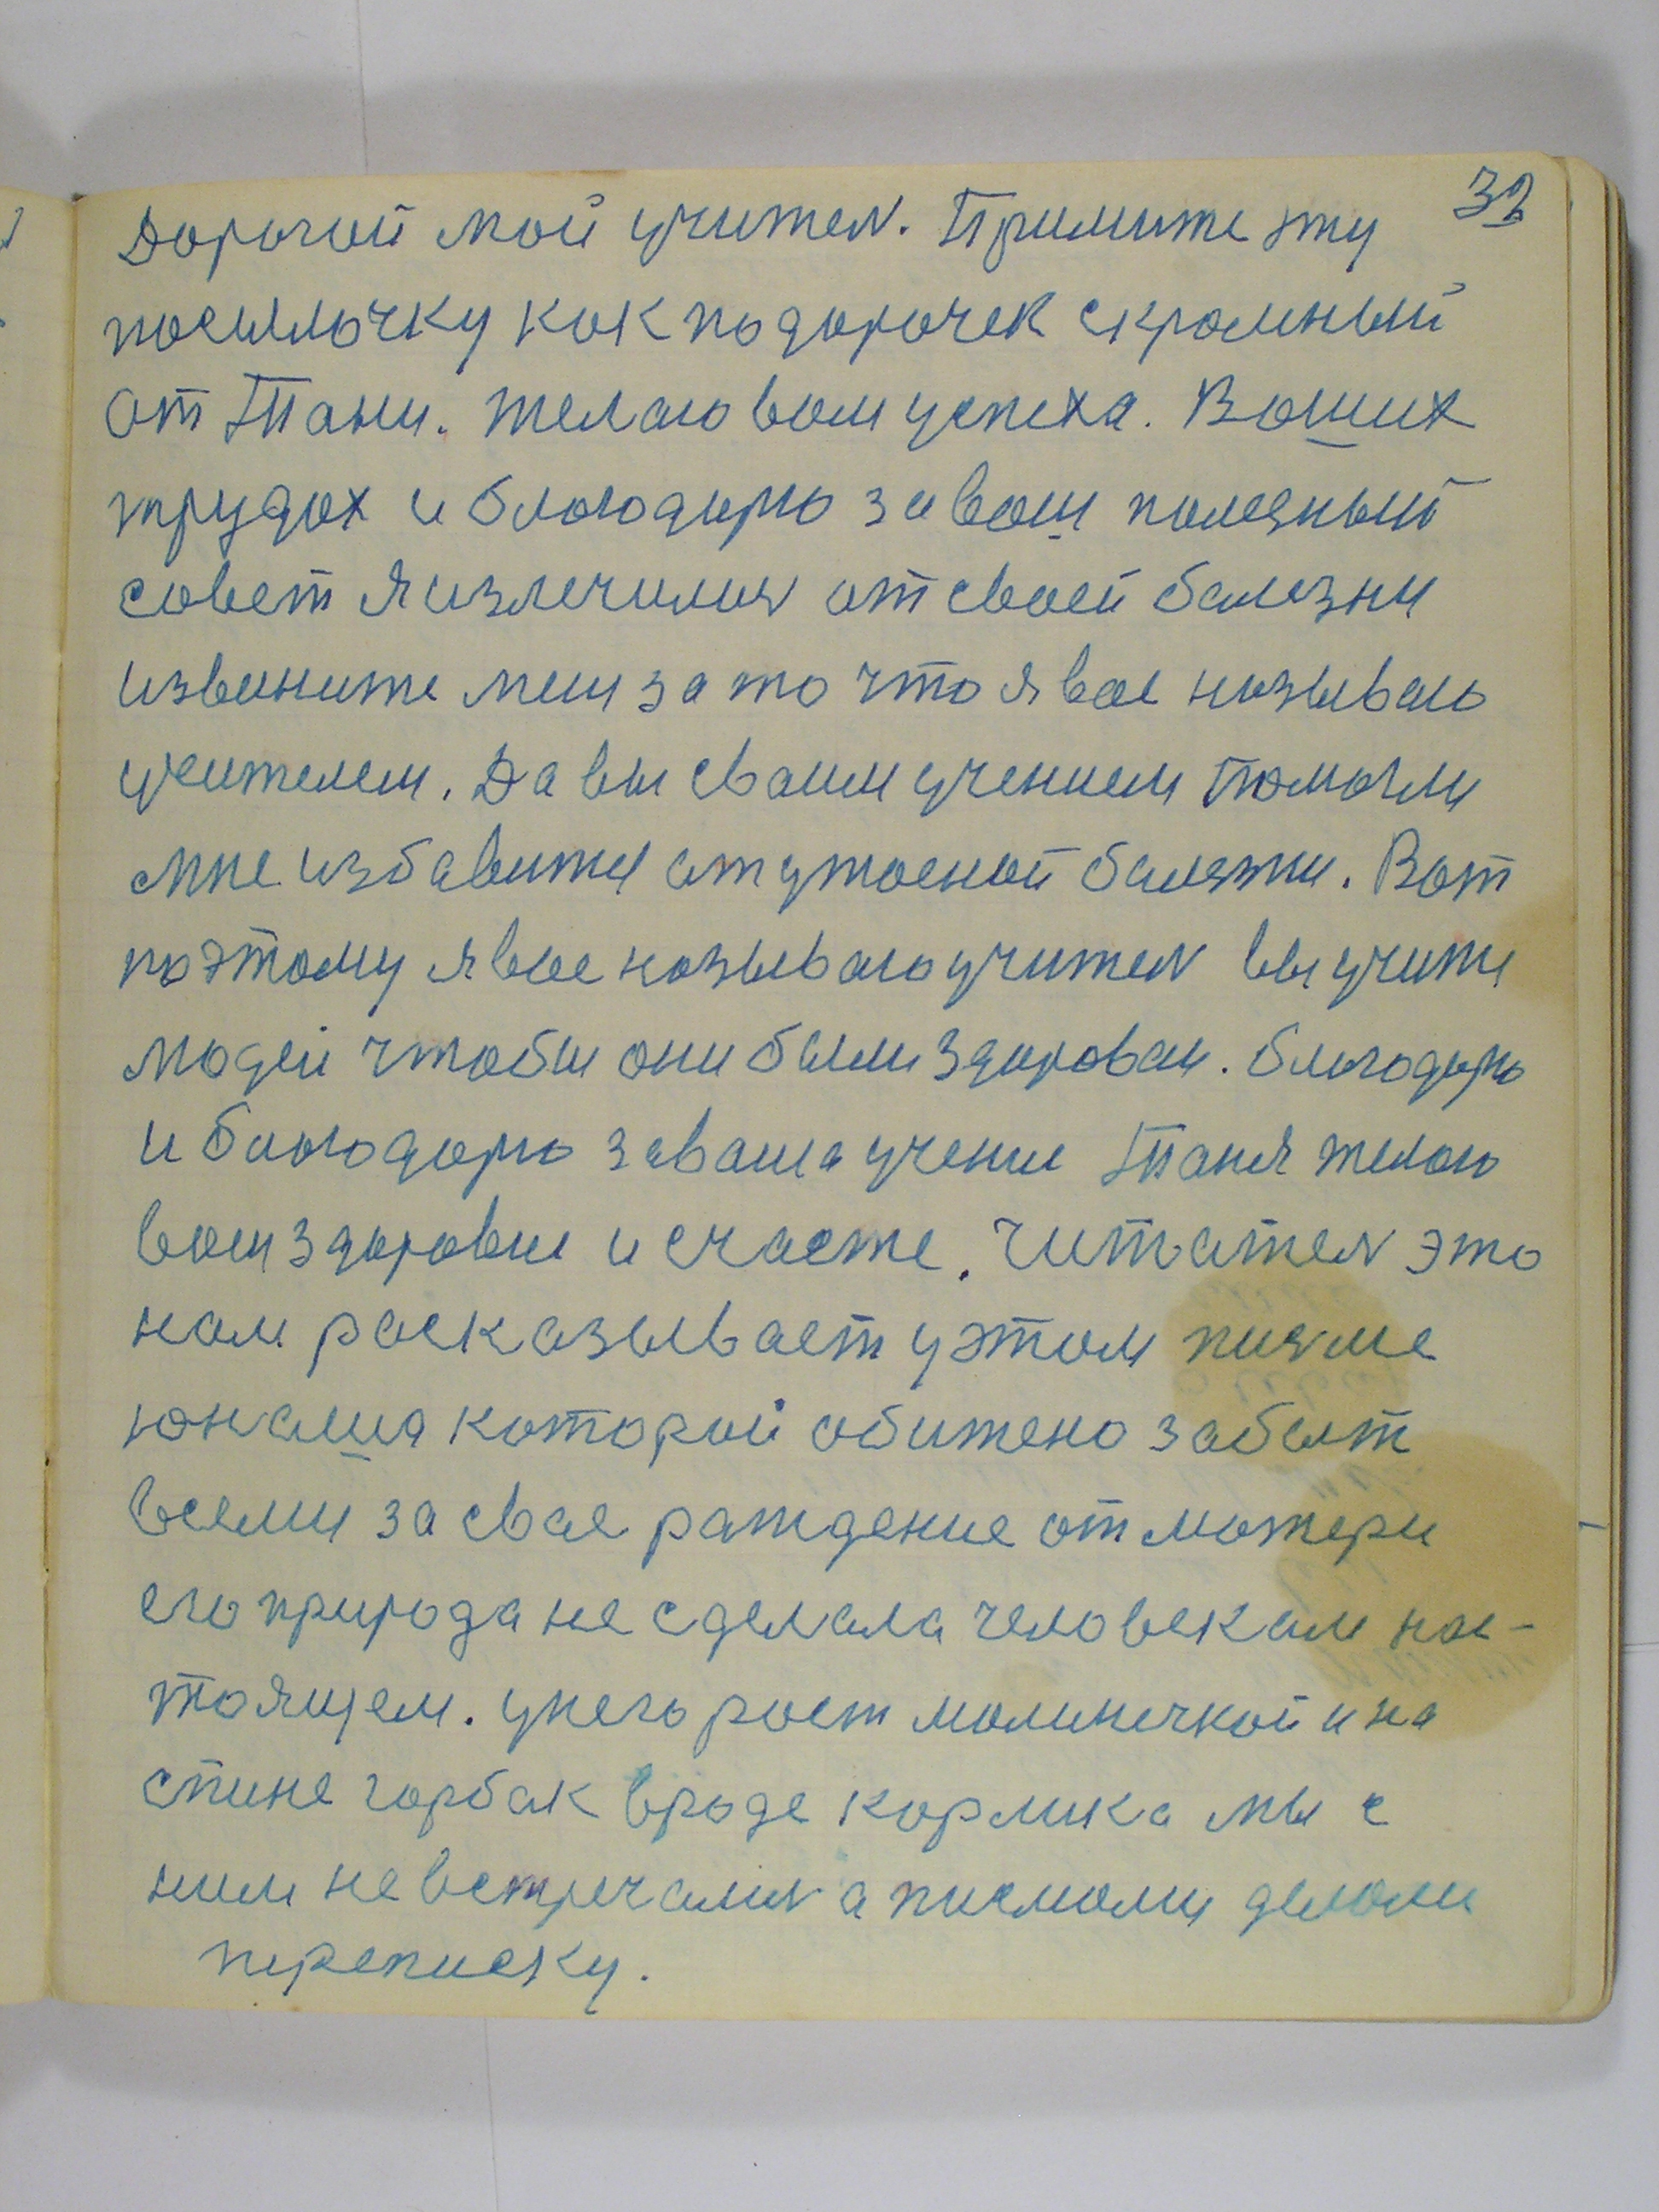 32
Дорогой мой учител. Примите эту
посылочку как подарочек скромный
от Тани. желаю вам успеха. Ваших
трудах и благодарю за ваш полезный
совет я излечилия от своей балезни
извените мен за то что я вас называю
учителем. Да вы сваим учением помогли
мне избавитя от ужасной балезни. Вот
поэтому я вас называю учител вы учите
людей чтобы они были здоровы. благодарю
и благодарю за ваша учение Таня желаю
вам здоровие и счасте. Читател это
нам расказывает у этом писме
юнаша которой обижено забыт
всеми за свае раждение от матери
его природа не сделала человекам нас-
тоящем. у него рост малинечкой и на
спине горбок вроде карлика мы с
ним не встречалис а писмами делали
переписку.